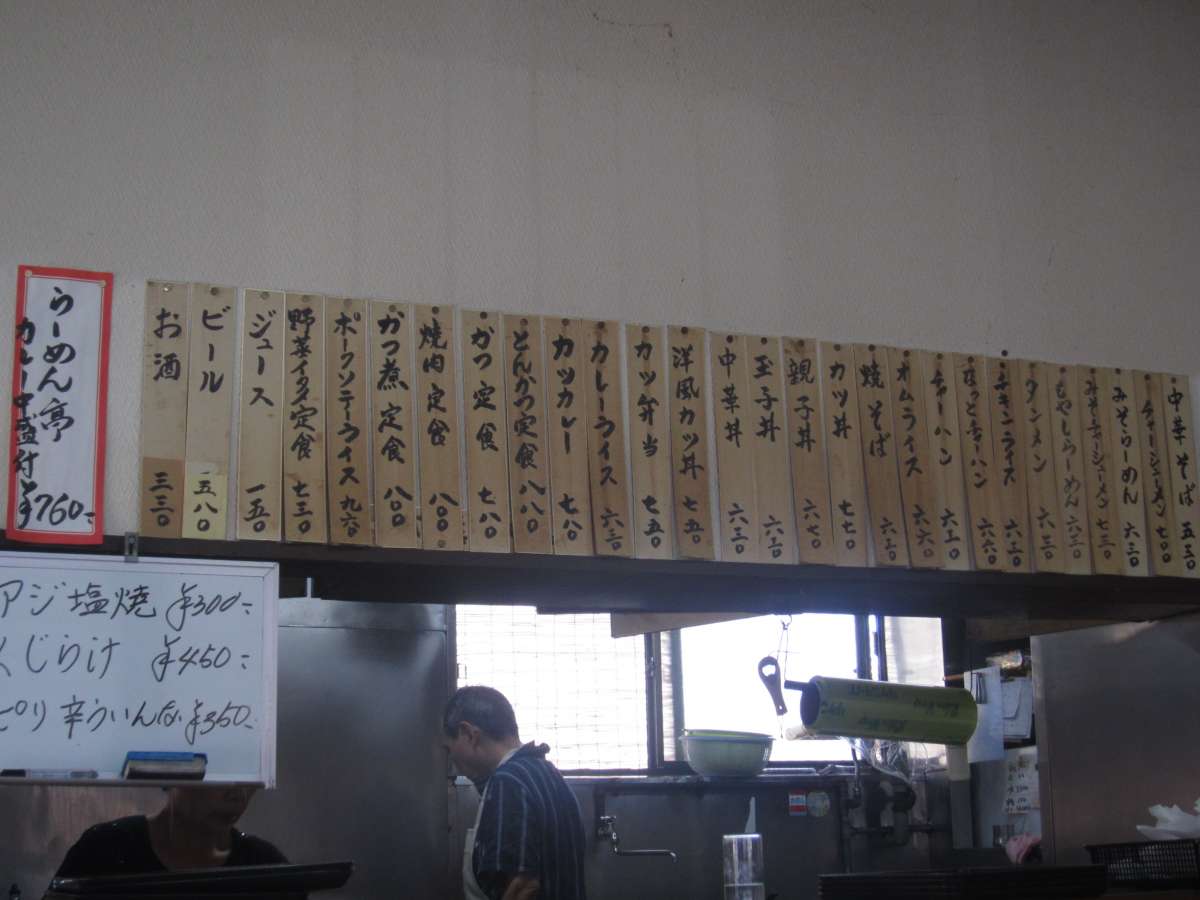 中華そば 五三〇
チャーシューメン 七〇〇
みそらーめん 六三〇
みそチャーシューメン 七三〇
もやしらーめん 六三〇
タンメン 六三〇
チキンライス 六三〇
なっとチャーハン 六六〇
チャーハン 六三〇
オムライス 六六〇
焼そば 六三〇
カツ丼 七七〇
親子丼 六七〇
玉子丼 六三〇
中華丼 六三〇
洋風カツ丼 七五〇
カツ弁当 七五〇
カレーライス 六三〇
カツカレー 七八〇
とんかつ定食 八八〇
かつ定食 七八〇
焼肉定食 八〇〇
かつ煮定食 八〇〇
ポークソテーライス 九六〇
野菜イタメ定食 七三〇
ジュース 一五〇
ビール 五八〇
お酒 三三〇
らーめん亭
カレー中盛付
¥760-
アジ塩焼 ¥300-
くじらけ ¥450-
ピリ辛ういんな ¥350-